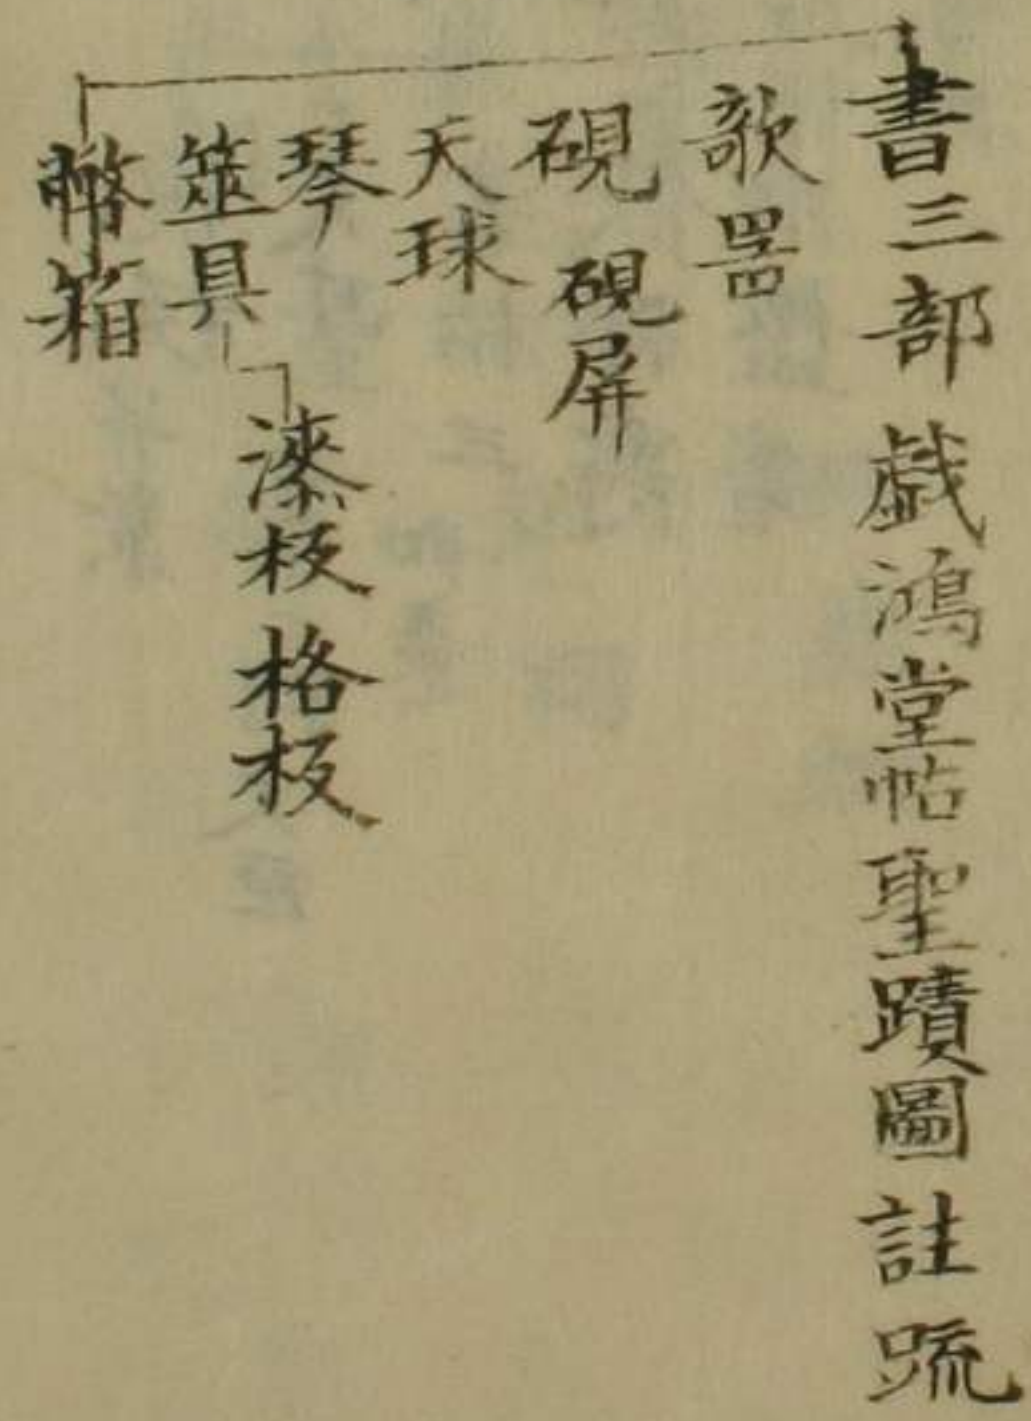 書三部 戯鴻堂帖 聖蹟圖 註䟽
欹器
硯 硯屏
天球
琴
筮具
漆板 格板
幣箱